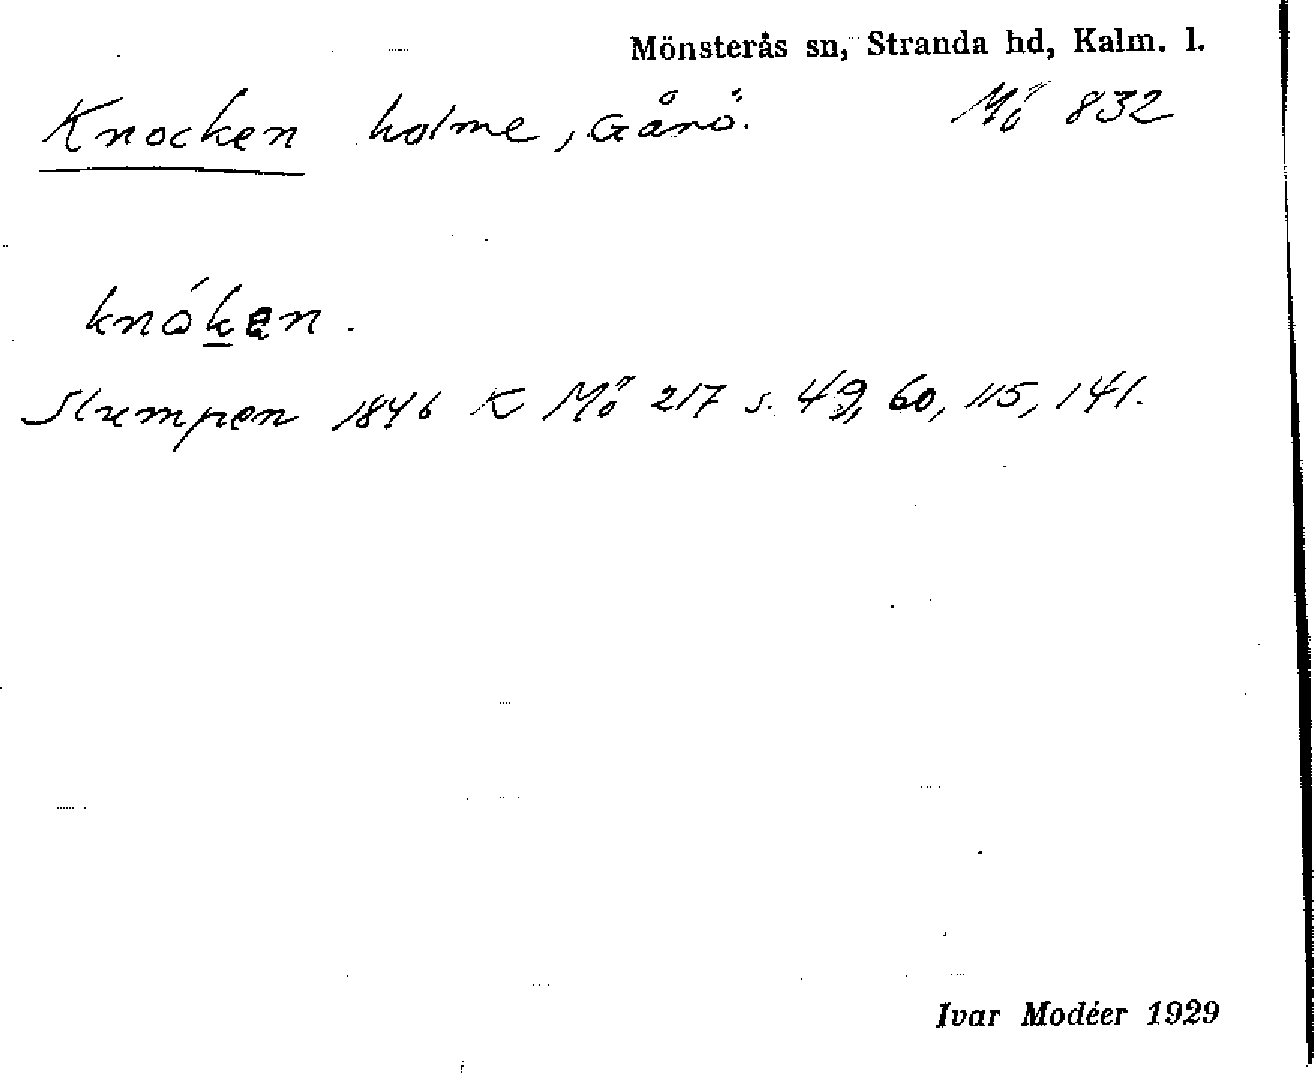 Mönsterås sn, Stranda hd, Kalm. l.
Knocken holme, Gårö. Mö 832
knóken.
Slumpen 1846 K Mö 217 s. 49, 60, 115, 141.
Ivar Modéer 1929